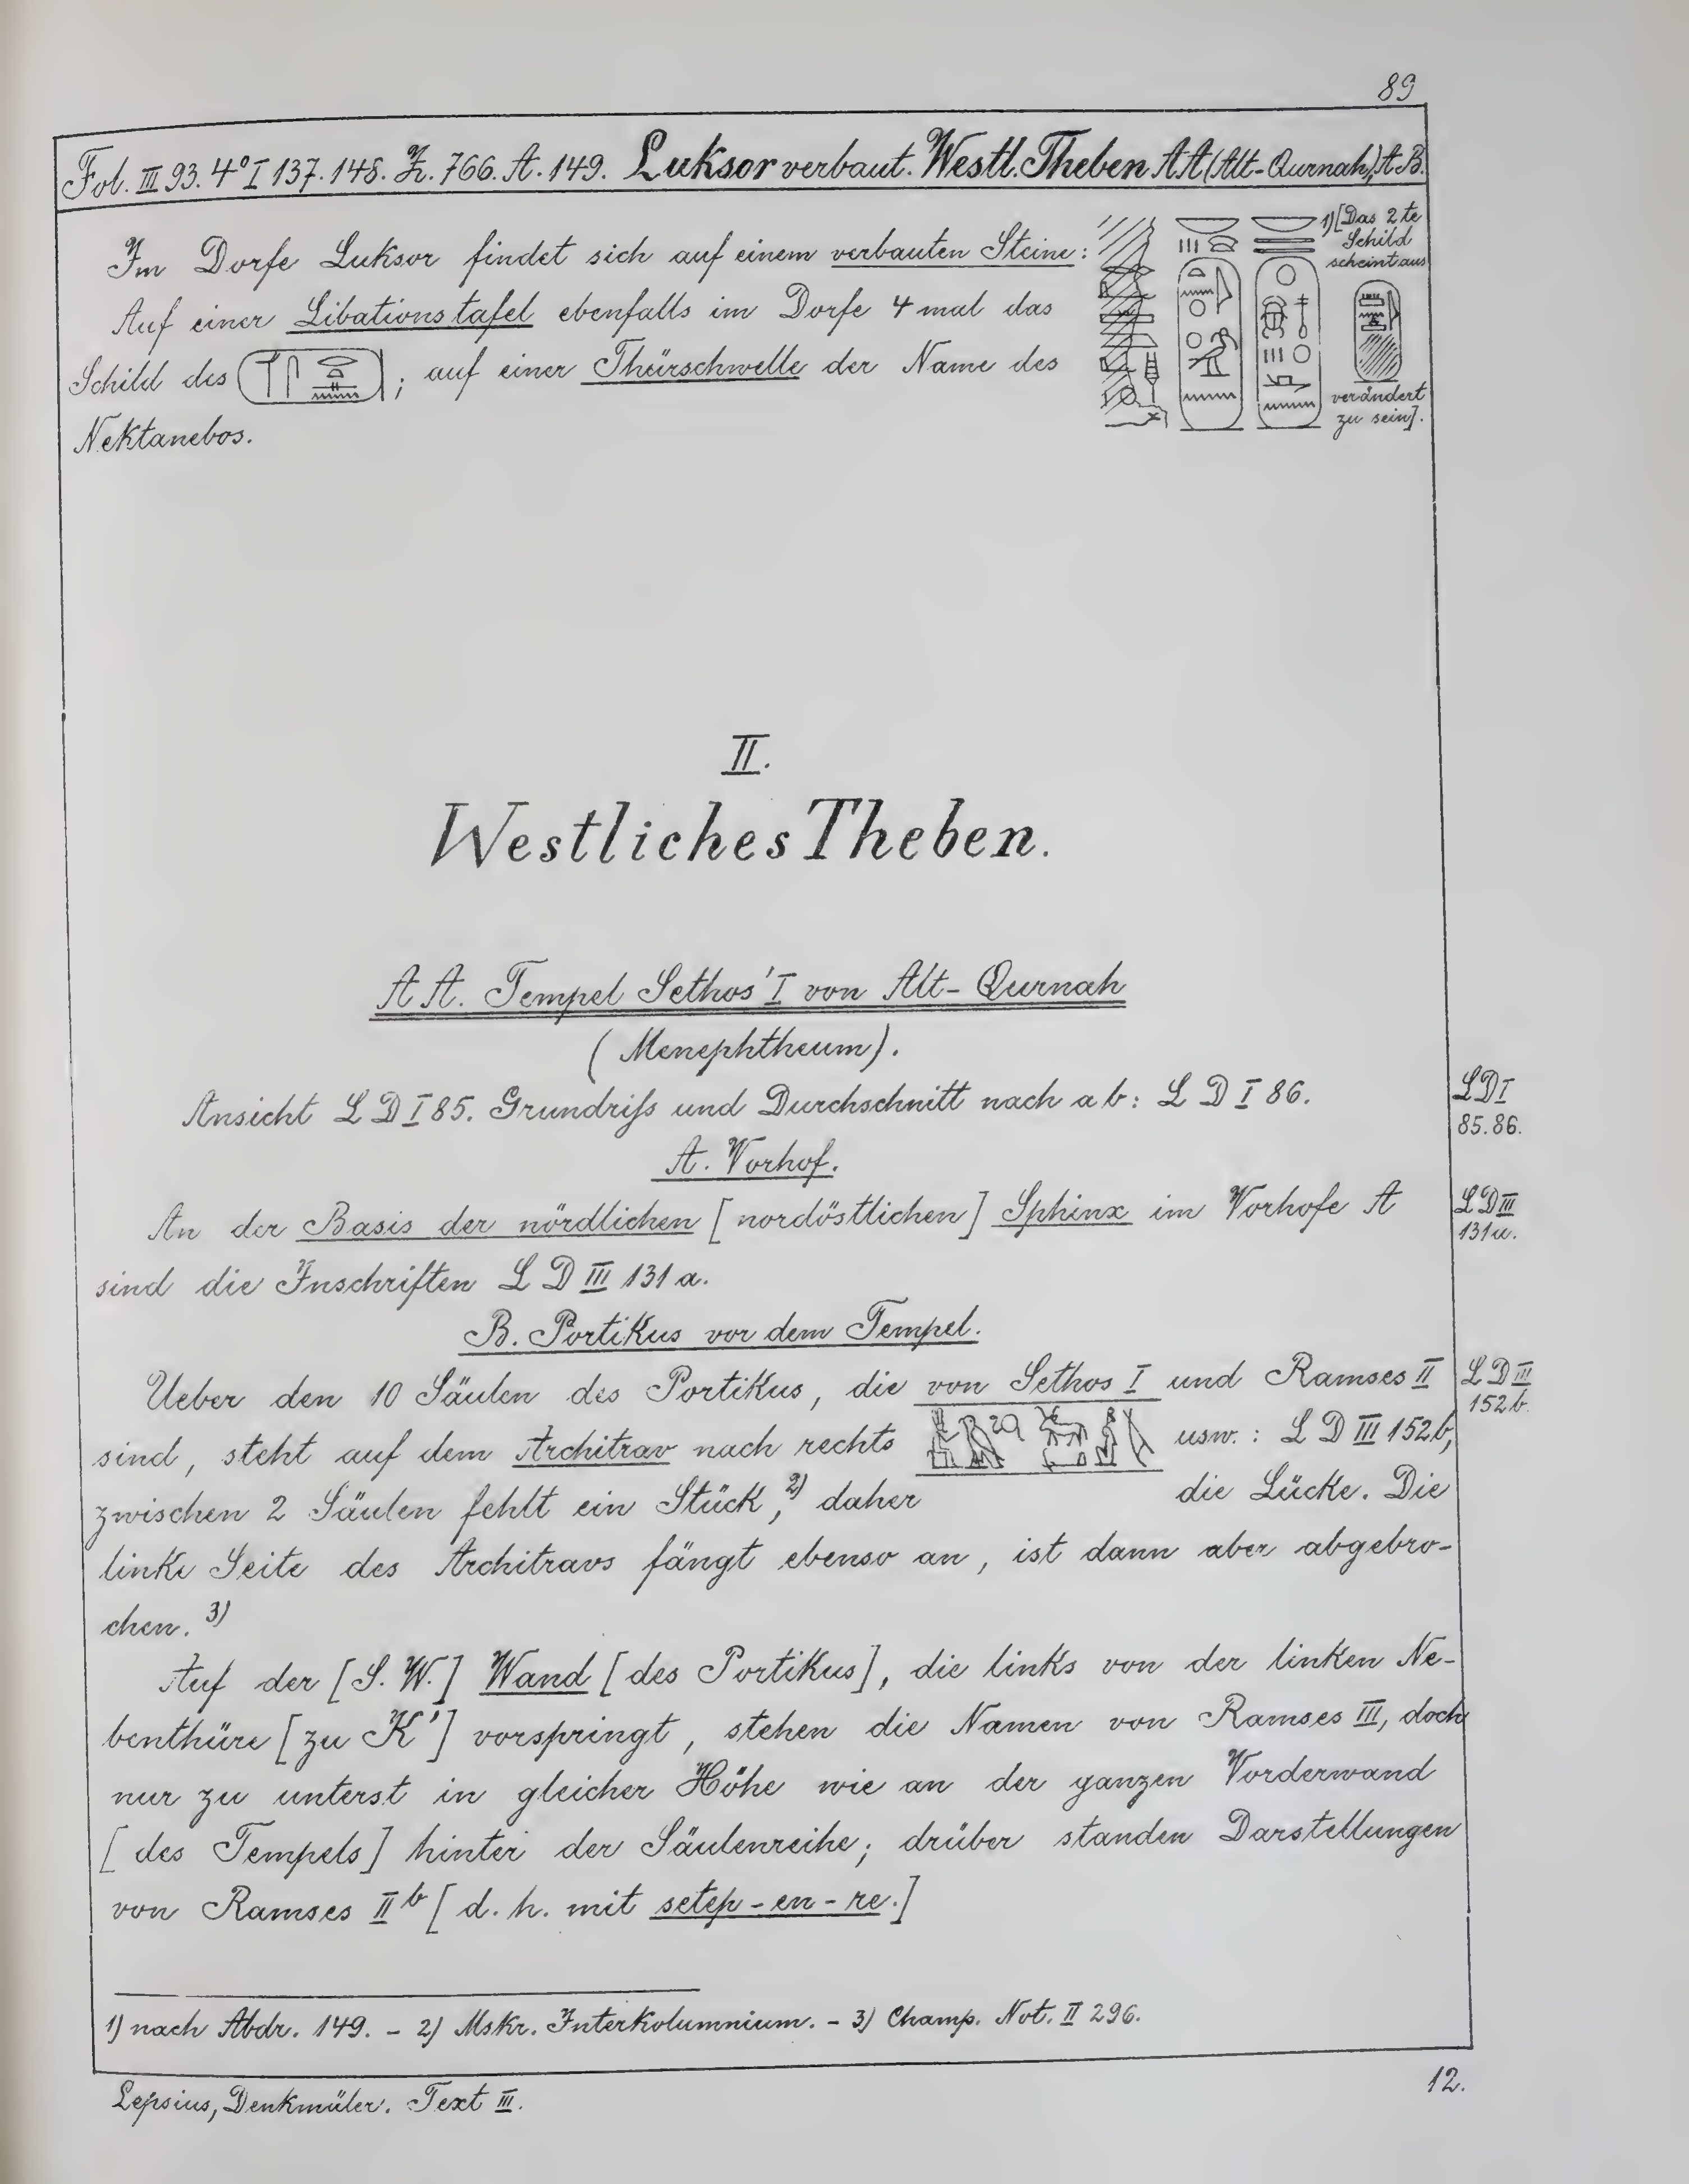 89
Fol. III 93. 4° I 137. 148. Z. 766. A. 149. Luksor verbaut. Westl. Theben AA (Alt-Qurnah), A B.
Im Dorfe Luksor findet sich auf einem verbauten Steine:
1) [Das 2te
Schild
scheint aus
verändert
zu sein].
Auf einer Libationstafel ebenfalls im Dorfe 4 mal das
Schild des ; auf einer Thürschwelle der Name des
Nektanebos.
II.
Westliches Theben.
AA. Tempel Sethos' I von Alt-Qurnah
(Menephtheum).
Ansicht L D I 85. Grundriſs und Durchschnitt nach a b: L D I 86.
L D I
85. 86.
A. Vorhof.
An der Basis der nördlichen [nordöstlichen] Sphinx im Vorhofe A
L D III
131a.
sind die Inschriften L D III 131 a.
B. Portikus vor dem Tempel.
Ueber den 10 Säulen des Portikus, die von Sethos I und Ramses II
L D III
152 b.
sind, steht auf dem Architrav nach rechts usw.: L D III 152b,
zwischen 2 Säulen fehlt ein Stück,2) daher die Lücke. Die
linke Seite des Architravs fängt ebenso an, ist dann aber abgebro-
chen. 3)
Auf der [S. W.] Wand [des Portikus], die links von der linken Ne-
benthüre [zu K'] vorspringt, stehen die Namen von Ramses III, doch
nur zu unterst in gleicher Höhe wie an der ganzen Vorderwand
[des Tempels] hinter der Säulenreihe; drüber standen Darstellungen
von Ramses II b [d. h. mit setep-en-re.]
1) nach Abdr. 149. – 2) Mskr. Interkolumnium. – 3) Champ. Not. II 296.
Lepsius, Denkmäler. Text III.
12.